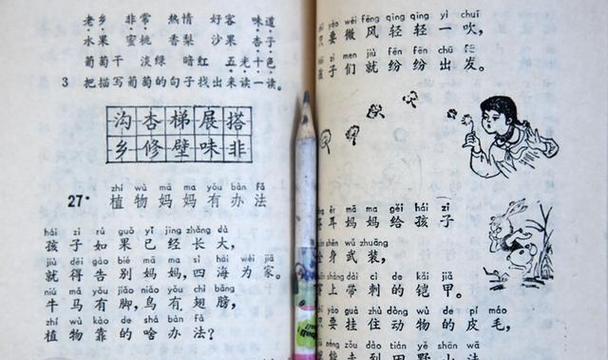 老乡 非常 热情 好客 味道
水果 蜜桃 香梨 沙果 杏子
葡萄干 淡绿 暗红 五光十色
3 把描写葡萄的句子找出来读一读。
沟杏梯展搭
乡修壁味非
zhí wù mā ma yǒu bàn fǎ
27* 植物妈妈有办法
hái zi rú guǒ yǐ jīng zhǎng dà
孩子如果已经长大,
jiù děi gào bié mā ma sì hǎi wéi jiā
就得告别妈妈,四海为家。
niú mǎ yǒu jiǎo niǎo yǒu chì bǎng
牛马有脚,鸟有翅膀,
zhí wù kào de shá bàn fǎ
植物靠的啥办法?
yào wēi fēng qīng qīng yì chuī
要微风轻轻一吹,
zi men jiù fēn fēn chū fā
孩子们就纷纷出发。
ěr mā ma gěi hái zi
耳妈妈给孩子
shēn wǔ zhuāng
身武装,
shàng dài cì de kǎi jiǎ
上带刺的铠甲。
yào guà zhù dòng wù de pí máo
要挂住动物的皮毛,